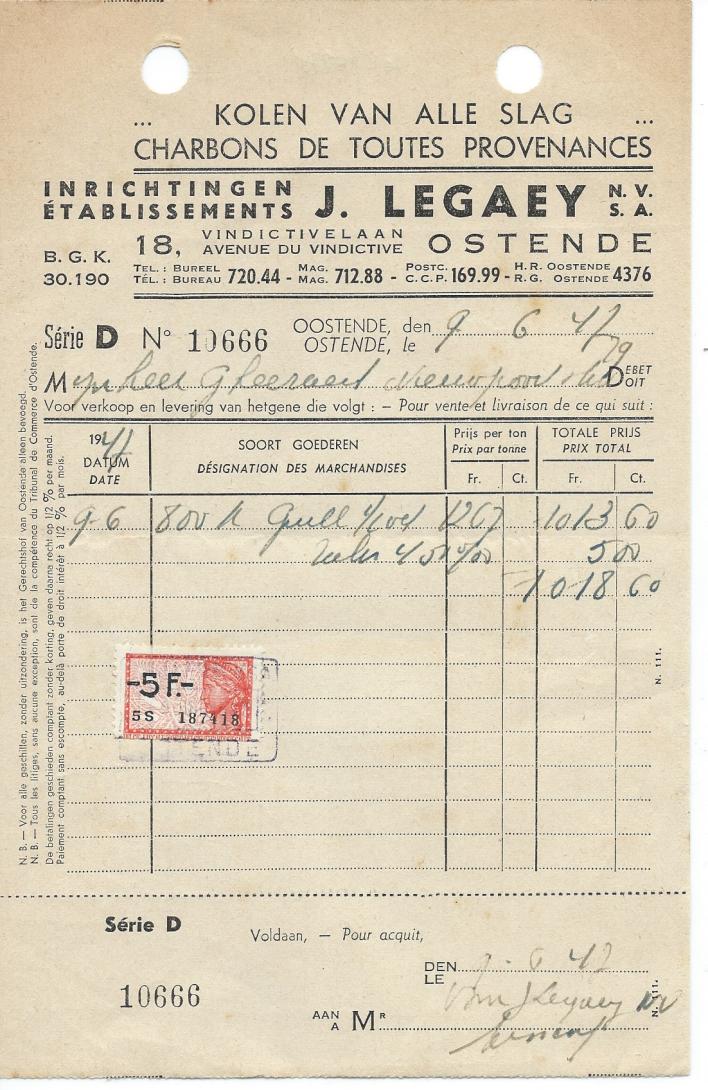 ... KOLEN VAN ALLE SLAG ...
CHARBONS DE TOUTES PROVENANCES
INRICHTINGEN J. LEGAEY N. V.
ÉTABLISSEMENTS S. A.
B. G. K. 30.190
18, VINDICTIVELAAN OSTENDE
AVENUE DU VINDICTIVE
TEL.: BUREEL 720.44 - MAG. 712.88 - POSTC. 169.99 - H.R. OOSTENDE 4376
TÉL.: BUREAU MAG. C.C.P. R.G. OSTENDE
Série D N° 10666 OOSTENDE, den 9 6 47
OSTENDE, le
Mynheer Gheeraert Nieuwpoort DEBET
DOIT
Voor verkoop en levering van hetgene die volgt : – Pour vente et livraison de ce qui suit :
1947 DATUM DATE
SOORT GOEDEREN
DÉSIGNATION DES MARCHANDISES
Prijs per ton
Prix par tonne
Fr. Ct.
TOTALE PRIJS
PRIX TOTAL
Fr. Ct.
9-6 800 K 1267 1013 60
5 00
1018 60
-5 F.-
5S 187418
ENDE
N. B. — Voor alle geschillen, zonder uitzondering, is het Gerechtshof van Oostende alleen bevoegd.
N. B. — Tous les litiges, sans aucune exception, sont de la compétence du Tribunal de Commerce d'Ostende.
De betalingen geschieden comptant zonder korting, geven daarna recht op 1/2 % per maand.
Paiement comptant sans escompte, au-delà porte de droit intérêt à 1/2 % par mois.
N. 111.
Série D
Voldaan, — Pour acquit,
10666
DEN 9-6 47
LE
AAN
A Mr
N. 111.